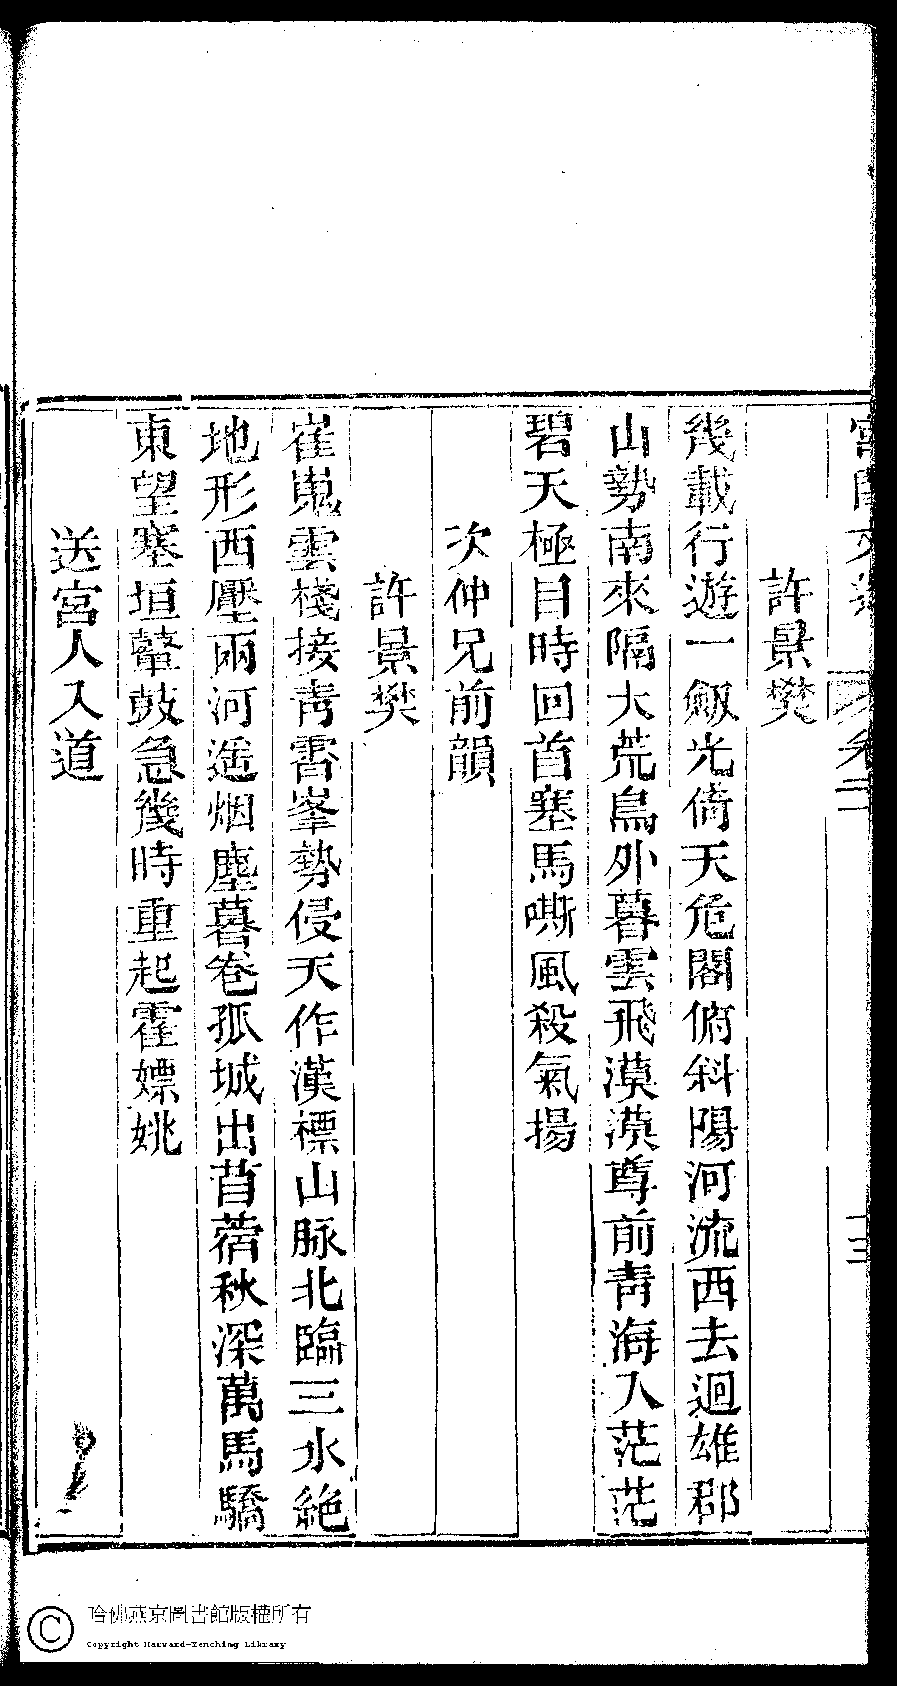 許景樊
幾載行遊一劔光倚天危閣俯斜陽河流西去迴雄郡
山勢南來隔大荒鳥外暮雲飛漠漠尊前青海入茫茫
碧天極目時回首塞馬嘶風殺氣揚
次仲兄前韻
許景樊
崔嵬雲棧接青霄峯勢侵天作漢標山脉北臨三水絶
地形西壓兩河遥烟塵暮卷孤城出苜蓿秋深萬馬驕
東望塞垣鼙鼓急幾時重起霍嫖姚
送宮人入道
哈佛燕京圖書館版權所有
Copyright Harvard-Yenching Library